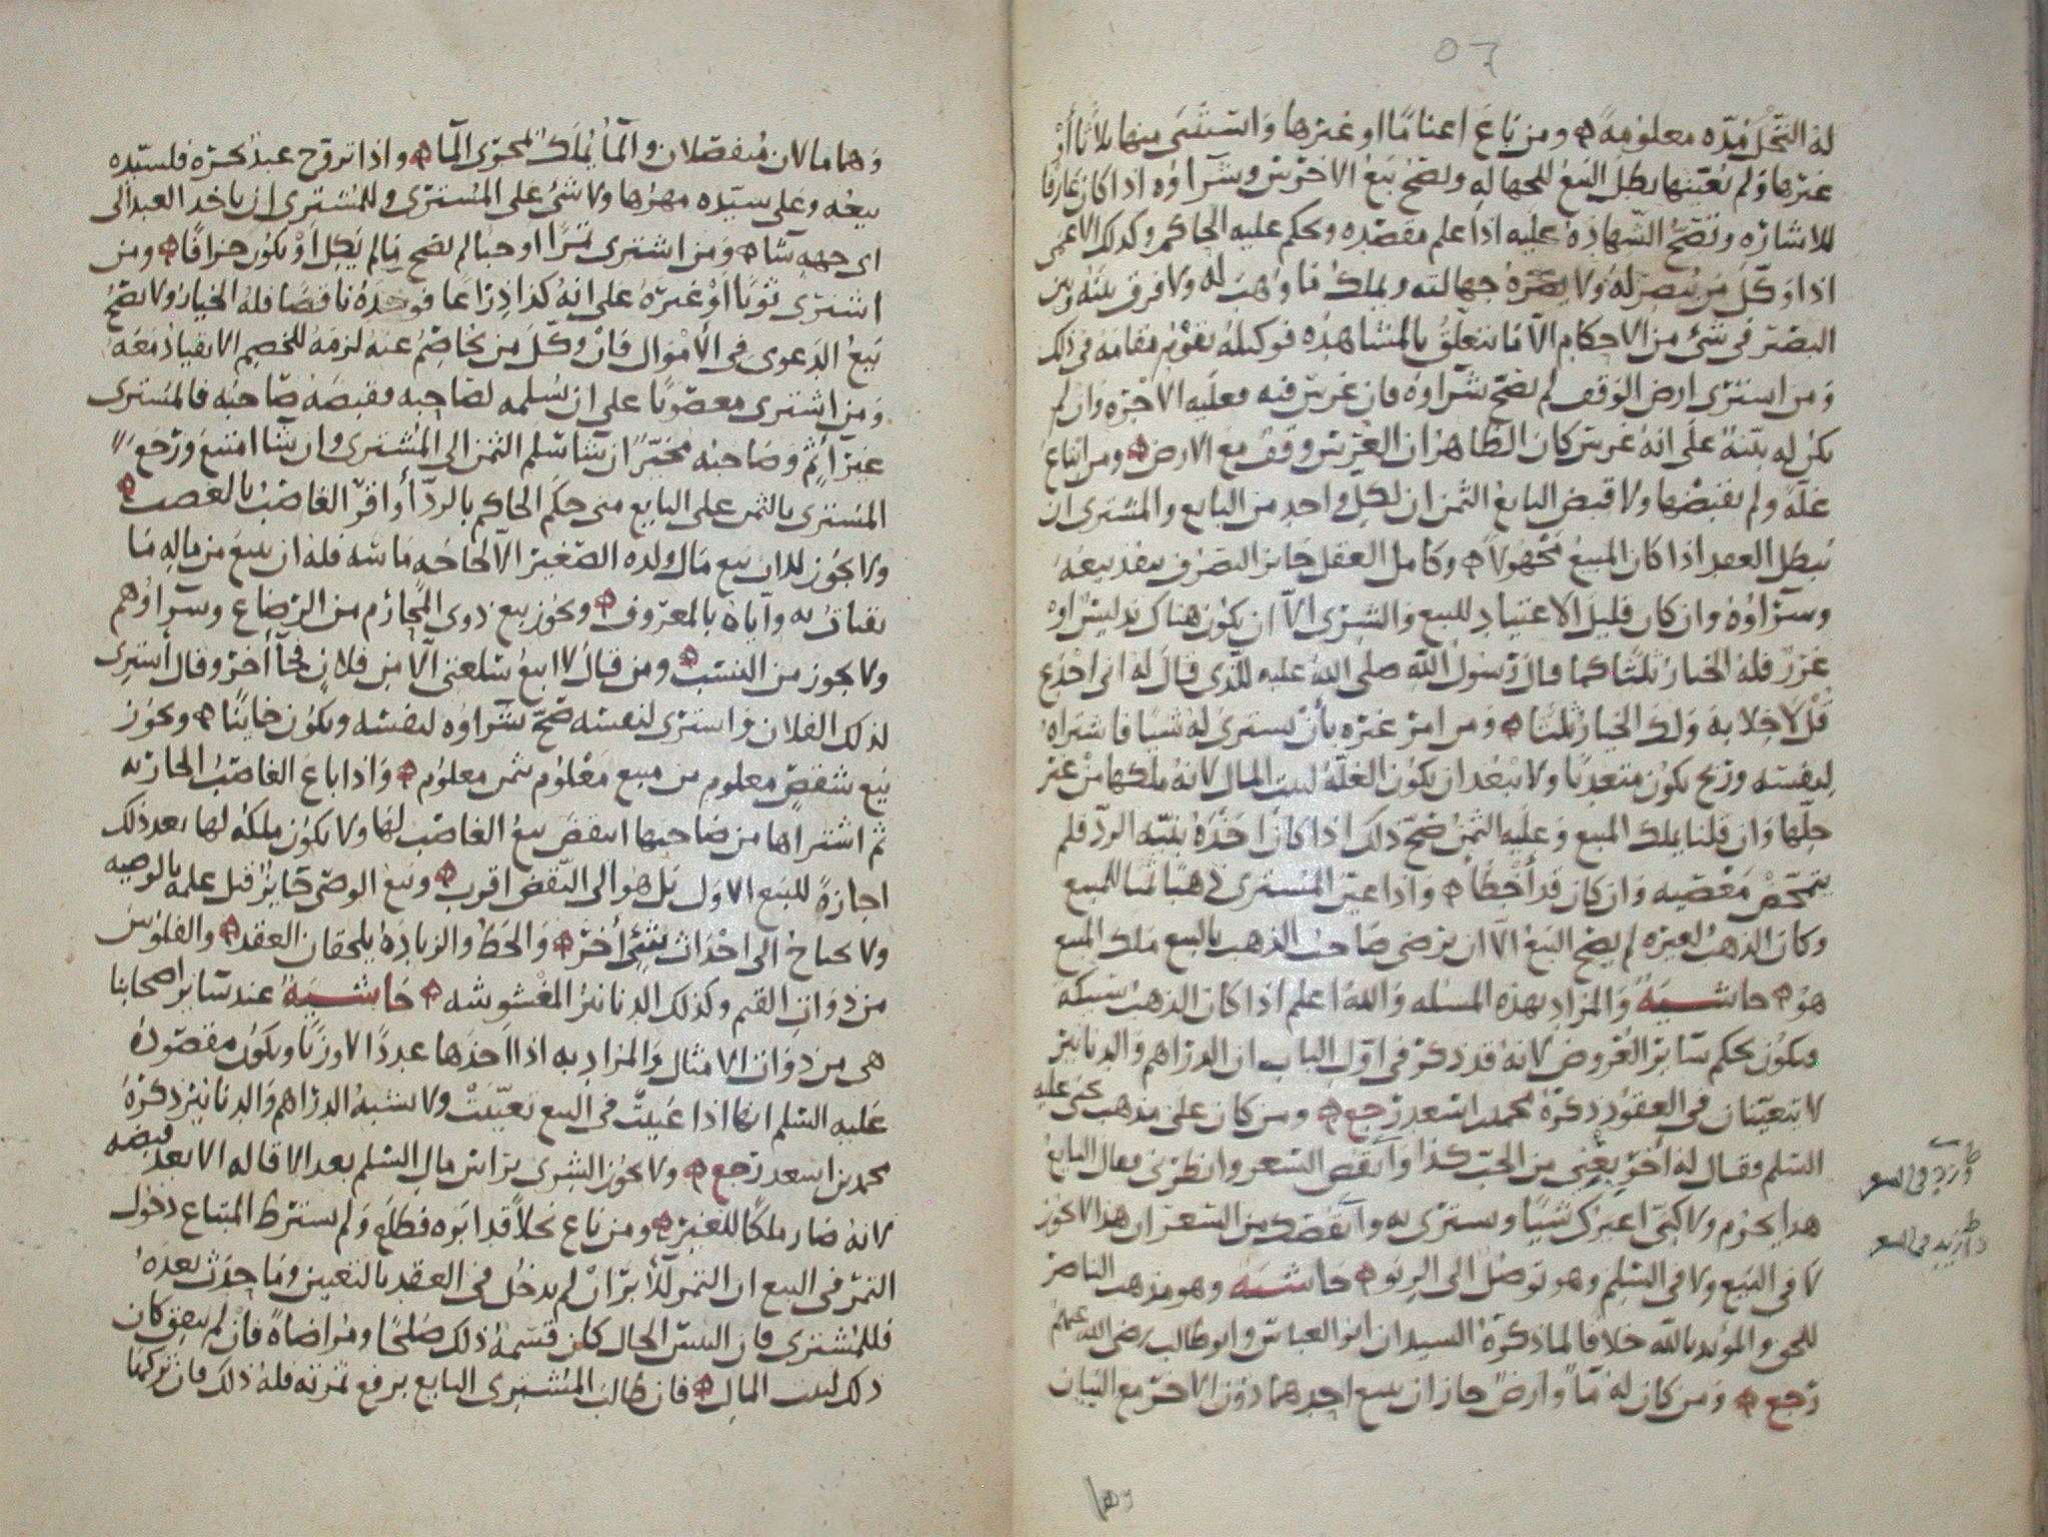 ٥٦
له النخل مده معلومة ومن باع اغناما او غيرها واستثنى منها ثلاثا أو
غيرها ولم يعينها بطل البيع للجهاله ويصح بيع الاخرس وشراوه اذا كان عارفا
للاشاره وتصح الشهادة عليه اذا علم مقصده ويحكم عليه الحاكم وكذلك الاعمى
اذا وكل من يبصر له ولا يضره جهالته ويملك ما وهب له ولا فرق بينه وبين
البصير في شي من الاحكام الا ما يتعلق بالمشاهده فوكيله يقوم مقامه في ذلك
ومن استرى ارض الوقف لم يصح شراوه فان غرس فيه فعليه الاجره وان لم
يكن له بينة على انه غرس كان الظاهر ان الغرس وقف مع الارض ومن ابتاع
غلة ولم يقبضها ولا قبض البايع الثمن ان لكل واحد من البايع والمشترى ان
يبطل العقد اذا كان المبيع مجهولا وكامل العقل جايز التصرف ينفذ بيعه
وسراوه وان كان قليل الاعتياد للبيع والشرى الا ان يكون هناك تدليس او
غرر فله الخيار ثلثا كما قال رسول الله صلى الله عليه للذي قال له اني اخدع
قل لا خلابه ولك الخيار ثلثا ومن امر غيره بأن يسترى له شيا فاشتراه
لنفسه وربح يكون متعديا ولا يبعد ان يكون الغلة لبيت المال لانه ملكها من غير
حلها وان قلنا يملك المبيع وعليه الثمن صح ذلك اذا كان اخذه بنية الرد فلم
يتمحض معصيه وان كان قد أخطأ واذا عين المسترى ذهبا ثمنا للمبيع
وكان الذهب لغيره لم يصح البيع الا ان يرضى صاحب الذهب بالبيع ملك المبيع
هو حاشية والمراد بهذه المسئله والله اعلم اذا كان الذهب سبيكة
ويكون بحكم ساير العروض لانه قد ذكر في اول الباب ان الدراهم والدنانير
لا تتعينان في العقود ذكره محمد بن اسعد رجع ومن كان على مذهب يحيى عليه
السلم فقال له أخر بعني من الحب كذا وانقص السعر وانظرني فقال البايع
هذا يحرم ولاكني اعيرك شيا وستربى به وانقصك من السعر ان هذا لا يجوز
لا في البيع ولا في السلم وهو توصل الى الربو حاشية وهو مذهب الناصر
للحق والمويد بالله خلافا لما ذكره السيدان ابو العباس وابو طالب رضي الله عنهم
رجع ومن كان له ما وارض جاز ان يبيع احدهما دون الاخر مع البيان
وهما
وهما مالان منفصلان والما يملك لمجرى الما واذا تزوج عبد بحره فلسيده
بيعه وعلى سيده مهرها ولا شي على المسترى وللمشترى ان ياخذ العبد الى
اى جهه شا ومن اشترى برا او حبا لم يصح مالم يكل او يكون جزافا ومن
اشترى ثوبا او غيره على انه كذا ذراعا فوجده ناقصا فله الخيار ولا يصح
بيع الدعوى في الأموال فان وكل من يخاصم عنه لزمه للخصم الانقياد معه
ومن اشترى مغصوبا على ان يسلمه لصاحبه فقبضه صاحبه فالمشترى
غير آثم وصاحبه مخير ان شا سلم الثمن الى المشترى وان شا امتنع ورجع
المشترى بالثمن على البايع متى حكم الحاكم بالرد أو اقر الغاصب بالغصب
ولا يجوز للاب بيع مال ولده الصغير الا لحاجه ماسه فله ان يبيع من ماله ما
يقتات به واياه بالمعروف ويجوز بيع ذوى المحارم من الرضاع وسراوهم
ولا يجوز من النسب ومن قال لا ابيع سلعتي الا من فلان فجآ أخر وقال أشترى
لذلك الفلان واسترى لنفسه صح شراوه لنفسه ويكون خاينا ويجوز
بيع شقص معلوم من مبيع معلوم بثمن معلوم واذا باع الغاصب الجاريه
ثم اشتراها من صاحبها انتقض بيع الغاصب لها ولا يكون ملكه لها بعد ذلك
اجازة للبيع الاول بل هو الى النقض اقرب وبيع الوصي جايز قبل علمه بالوصيه
ولا يحتاج الى احداث شي أخر والحط والزيادة يلحقان العقد والفلوس
من ذوات القيم وكذلك الدنانير المغشوشه حاشية عند ساير اصحابنا
هي من ذوات الامثال والمراد به اذا اخذها عددا لا وزنا ويكون مقصوده
عليه السلم انها اذا عينت في البيع تعينت ولا يشبه الدراهم والدنانير ذكره
محمد بن اسعد رجع ولا يجوز الشرى براس مال السلم بعد الاقاله الا بعد قبضه
لانه صار ملكا للغير ومن باع نخلا قد ابره فطلع ولم يسترط المبتاع دخول
الثمر في البيع ان الثمر للأبر ان لم يدخل في العقد بالتعيين وما حدث بعده
فللمشترى فان التبس الحال كان قسمة ذلك صلحا ومراضاة فان لم يتفق كان
ذلك لبيت المال فان طالب المشترى البايع برفع ثمرته فله ذلك فان تركها